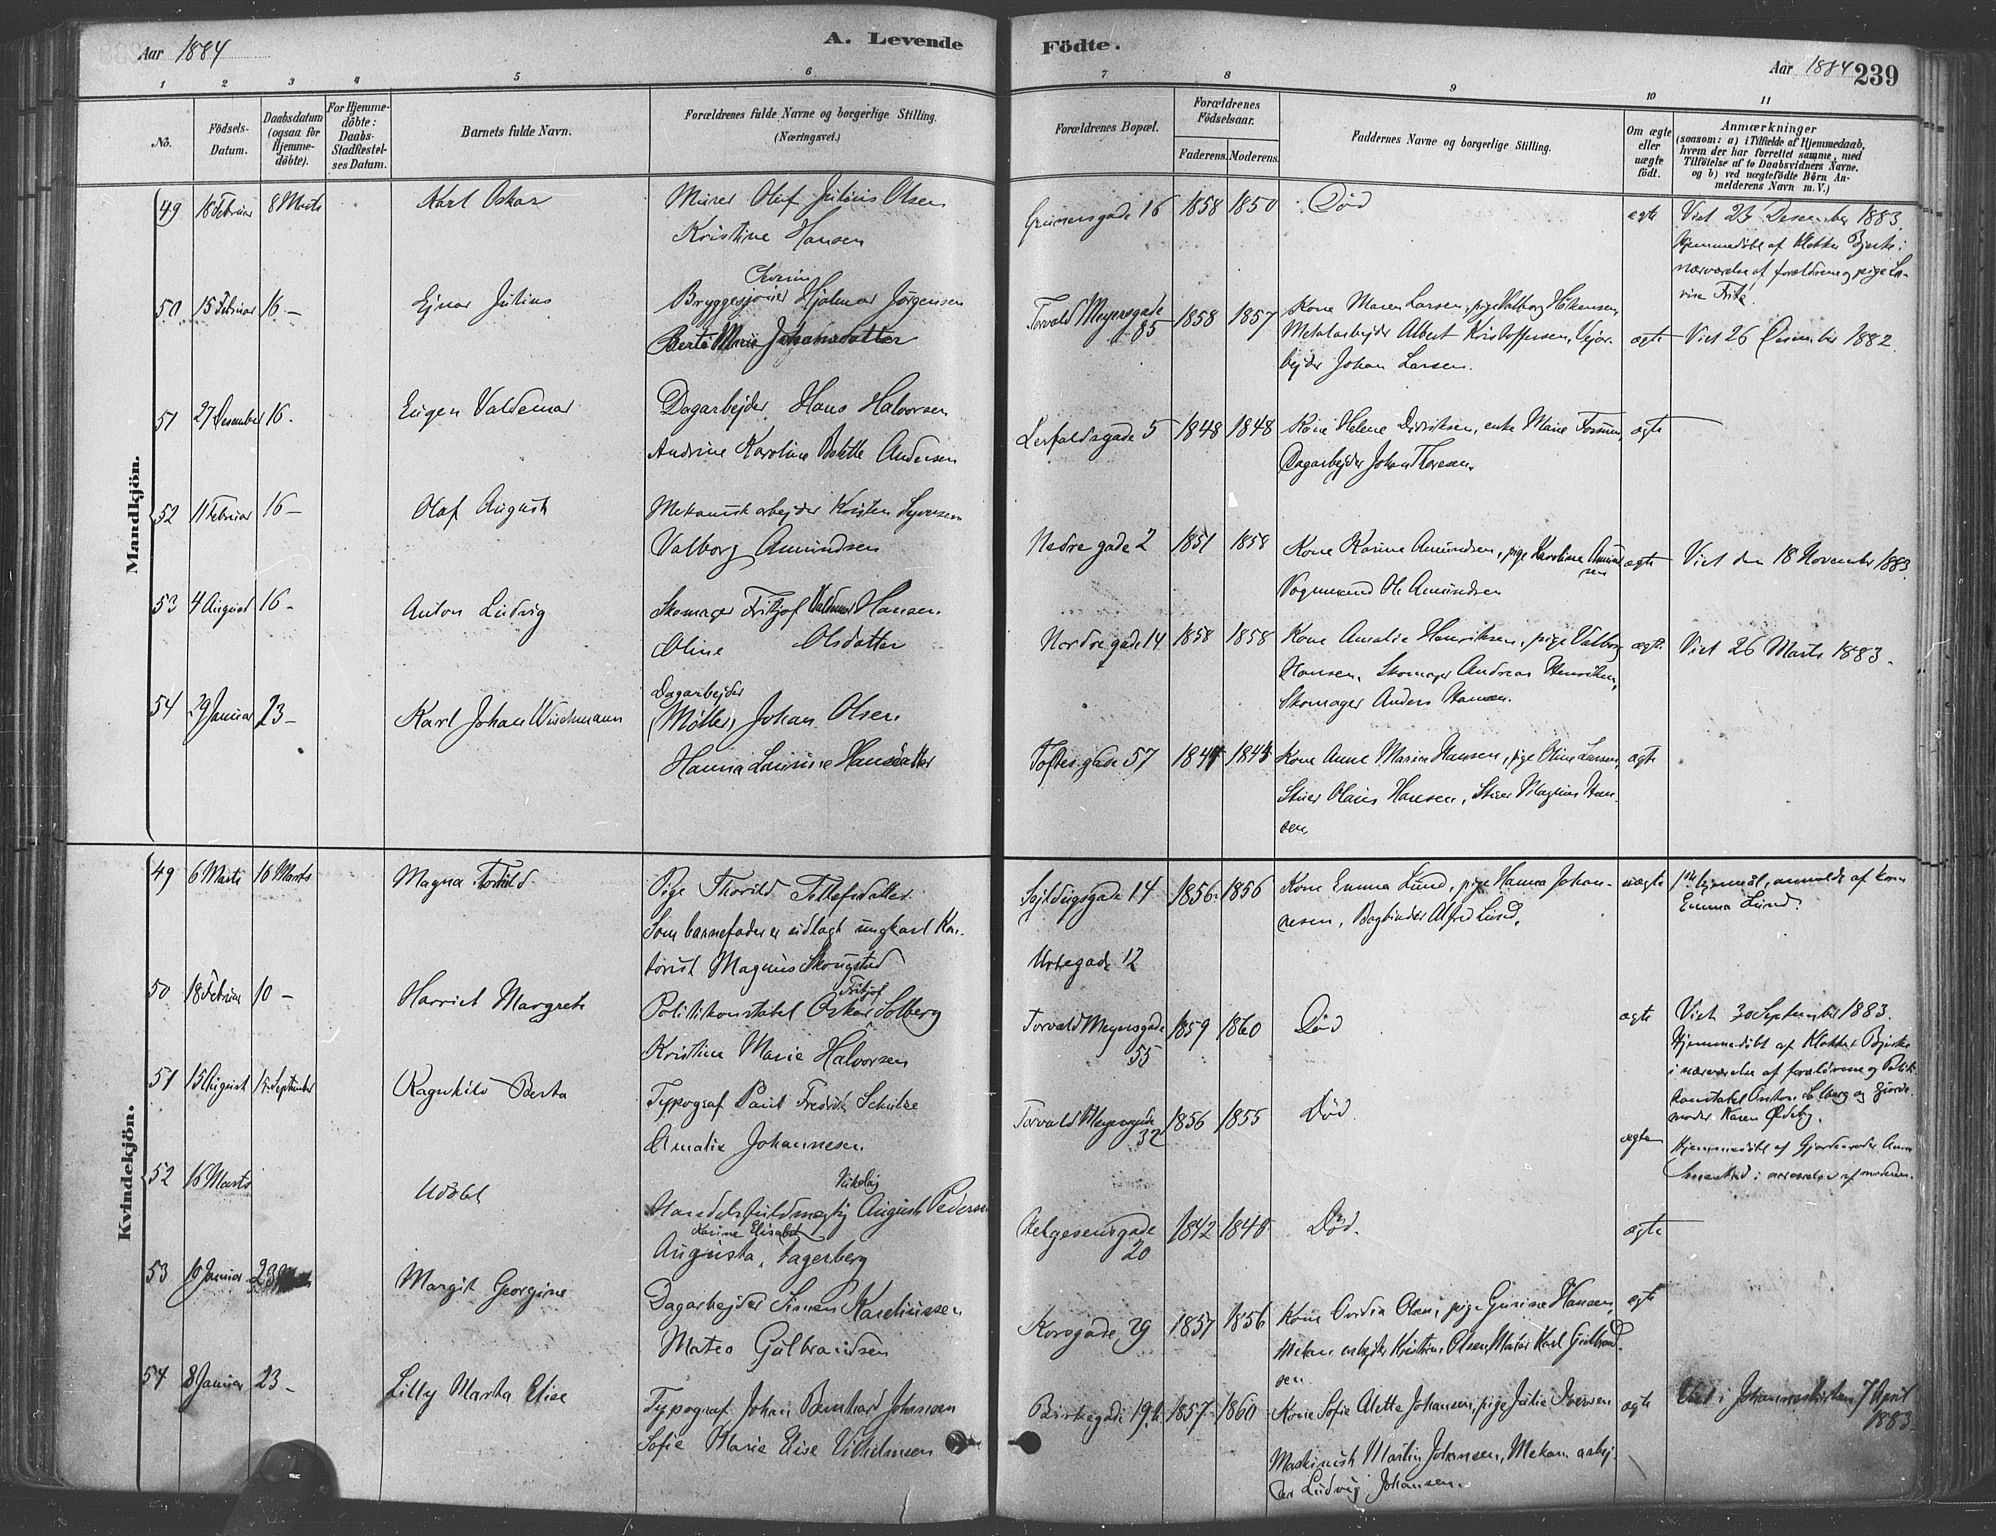 Aar 1884
A. Levende
Födte.
Aar 1884
239
1 2 3 4 5 6 7 8 9 10 11
No.
Födsels-
Datum.
Daabsdatum
(ogsaa for
Hjemme-
döbte).
For Hjemme-
döbte:
Daabs-
Stadfæstel-
ses Datum.
Barnets fulde Navn.
Forældrenes fulde Navne og borgerlige Stilling.
(Næringsvei.)
Forældrenes Bopæl.
Forældrenes
Födselsaar.
Faderens. Moderens.
Faddernes Navne og borgerlige Stilling.
Om ægte
eller
uægte
födt.
Anmærkninger
(saasom: a) i Tilfælde af Hjemmedaab,
hvem der har forrettet samme, med
Tilföielse af to Daabsvidners Navne.
og b) ved uægtefödte Börn An-
melderens Navn m. V.)
Mandkjön.
49 18 Februar 8 Marts Karl Oskar Murer Oluf Julius Olsen
Kristine Hansen
Grünersgade 16 1858 1850 Död ægte Viet 23 Desember 1883.
Hjemmedöbt af Klokker Bjerke i
nærværelse af forældrene og pige La-
vise Fritz.
50 15 Februar 16 – Ejnar Julius Bryggesjouer Hjalmar Jörgensen
Berte Marie Johansdatter
Torvald Meyersgade
85 1858 1857 Kone Maren Larsen, pige Valborg Håkensen,
Metalarbejder Albert Kristoffersen, Vejar-
bejder Johan Larsen. ægte Viet 26 Desember 1882.
51 27 Desember 16. Eugen Valdemar Dagarbejder Hans Halvorsen
Andrine Karoline Bolette Andersen
Lerfaldsgade 5 1848 1848 Kone Helene Didriksen, enke Marie Fossum,
Dagarbejder Johan Thoresen. ægte
52 11 Februar 16 – Olaf August Mekanisk arbejder Kristen Syversen
Valborg Amundsen
Nedre gade 2 1851 1858 Kone Karine Amundsen, pige Karoline Amund
sen
Vognmand Ole Amundsen ægte Viet den 18 November 1883.
53 4 August 16 – Anton Ludvig Skomager Fritjof Valdemar Hansen
Oline Olsdatter
Nordre gade 14 1858 1858 Kone Amalie Henriksen, pige Valborg
Hansen, Skomager Andreas Henriksen,
Skomager Anders Hansen. ægte Viet 26 Marts 1883.
54 29 Januar 23 – Karl Johan Wischmann Dagarbejder
(Möller) Johan Olsen
Hanna Laurine Hansdatter
Toftes gade 57 1844 1844 Kone Anne Marie Hansen, pige Oline Larsen,
Stuer Olaus Hansen, Stuer Magnus Han-
sen. ægte
Kvindekjön.
49 6 Marts 16 Marts Magna Torvild Pige Thorild Tellefsdatter.
Som barnefader er udlagt ungkarl Kon-
torist Magnus Skougstad
Sejldugsgade 14 1856 1856 Kone Emma Lund, pige Hanna Johan-
nesen, Bogbinder Alfred Lund.
Urtegade 12 uægte anmeldt af kone
Emma Lund.
50 18 Februar 10 – Harriet Margrete Politikonstabel Oskar Fritjof Solberg
Kristine Marie Halvorsen
Torvald Meyersgade
55 1859 1860 Död ægte Viet 30 September 1883.
Hjemmedöbt af Klokker Bjerke
i nærværelse af forældrene og Politi-
konstabel Anton Solberg og Gjorde-
moder Karen Ödeby.
51 15 August 15 September Ragnhild Berta Typograf Paul Fredrik Schulze
Amalie Johannesen
Torvald Meyersgade
32 1856 1855 Död. ægte Hjemmedöbt af Gjordemoder Anna
i nærværelse af moderen.
52 16 Marts Udöbt Handelsfuldmægtig August Nikolaj Pedersen
Karine Elisabet
Augusta Fagerberg
Helgesensgade
20 1842 1848 Död. ægte
53 10 Januar 23 Margit Georgine Dagarbejder Simen Karelinssen
Mateo Gulbrandsen
Korsgade 29 1857 1856 Kone Ovidia Olsen, pige Gurine Hansen,
Mekan arbejder Kristian Olsen, Maler Karl Gulbrand-
sen. ægte
54 8 Januar 23 – Lilly Marta Elise Typograf Johan Bernhard Johansen
Sofie Marie Elise Vilhelmsen
Birkegade 19b 1857 1860 Kone Sofie Alette Johansen, pige Julie Iversen
Maskinist Martin Johansen, Mekan arbej-
der Ludvig Johansen. ægte Viet i Johanneskirken 7 April
1883.